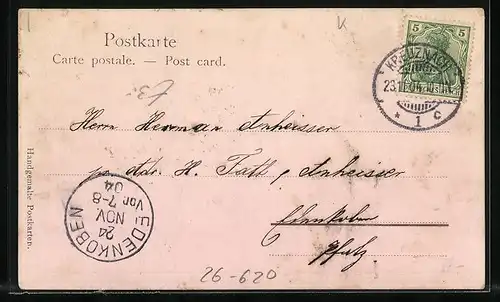 K
Postkarte
Carte postale. — Post card.
5 5
KREUZNACH
23.11.04.
* 1 c
Herrn Herman Anheisser
pr. adr. H. Anheisser
Edenkoben
Pfalz.
Handgemalte Postkarten.
EDENKOBEN
24
NOV
Vor. 7-8
04
26-620